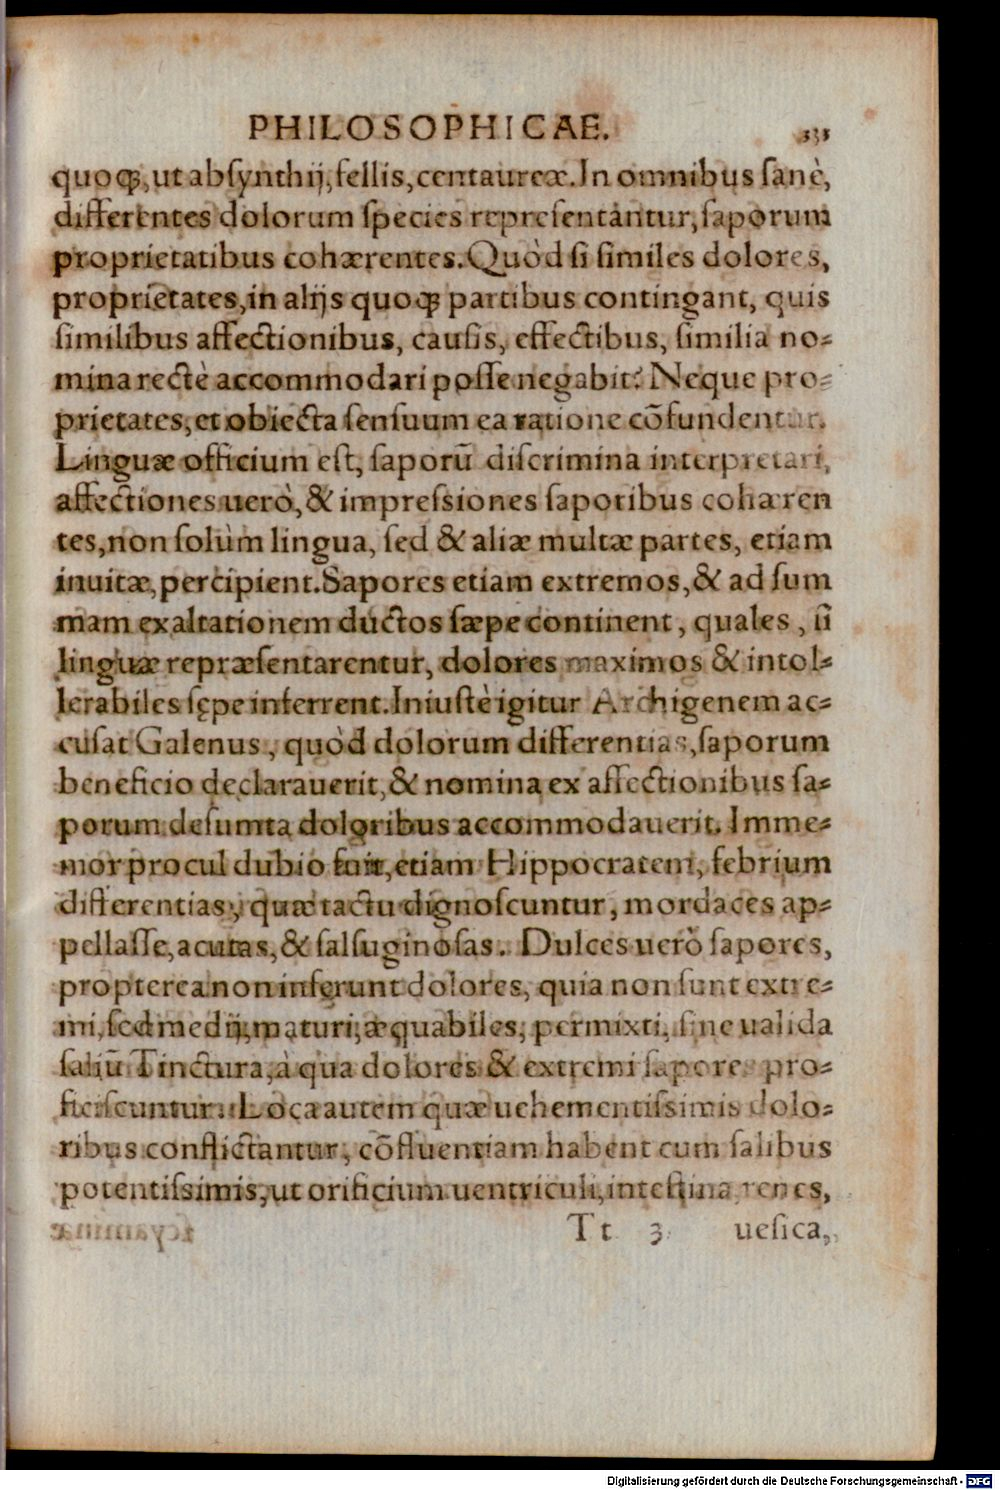 PHILOSOPHICAE. 331
quoq;, ut absynthij, fellis, centaureæ. In omnibus sanè,
differentes dolorum species repręsentantur, saporum
proprietatibus cohærentes. Quòd si similes dolores,
proprietates, in alijs quoq; partibus contingant, quis
similibus affectionibus, causis, effectibus, similia no-
mina rectè accommodari posse negabit? Neque pro-
prietates, et obiecta sensuum ea ratione cōfundentur.
Linguæ officium est, saporū discrimina interpretari,
affectiones uerò, & impressiones saporibus cohæren
tes, non solùm lingua, sed & aliæ multæ partes, etiam
inuitæ, percipient. Sapores etiam extremos, & ad sum
mam exaltationem ductos sæpe continent, quales, si
linguæ repræsentarentur, dolores maximos & intol-
lerabiles sępe inferrent. Iniustè igitur Archigenem ac-
cusat Galenus, quòd dolorum differentias, saporum
beneficio declarauerit, & nomina ex affectionibus sa-
porum desumta doloribus accommodauerit. Imme-
mor procul dubio fuit, etiam Hippocratem, febrium
differentias, quæ tactu dignoscuntur, mordaces ap-
pellasse, acutas, & salsuginosas. Dulces uerò sapores,
propterea non inferunt dolores, quia non sunt extre-
mi, sed medij, maturi, æquabiles, permixti, sine ualida
saliū Tinctura, à qua dolores & extremi sapores pro-
ficiscuntur. Loca autem quæ uehementissimis dolo-
ribus conflictantur, cōfluentiam habent cum salibus
potentissimis, ut orificium uentriculi, intestina, renes,
Tt 3 uesica,
Digitalisierung gefördert durch die Deutsche Forschungsgemeinschaft - DFG